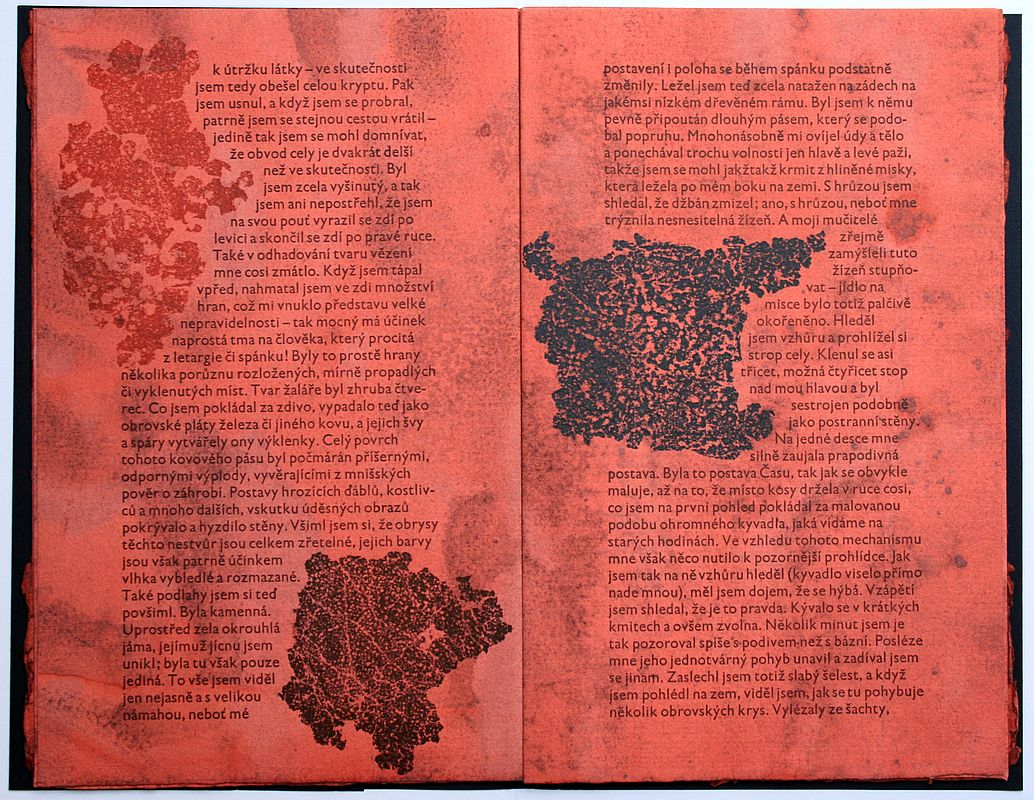 k útržku látky – ve skutečnosti
jsem tedy obešel celou kryptu. Pak
jsem usnul, a když jsem se probral,
patrně jsem se stejnou cestou vrátil –
jedině tak jsem se mohl domnívat,
že obvod cely je dvakrát delší
než ve skutečnosti. Byl
jsem zcela vyšinutý, a tak
jsem ani nepostřehl, že jsem
na svou pouť vyrazil se zdí po
levici a skončil se zdí po pravé ruce.
Také v odhadování tvaru vězení
mne cosi zmátlo. Když jsem tápal
vpřed, nahmatal jsem ve zdi množství
hran, což mi vnuklo představu velké
nepravidelnosti – tak mocný má účinek
naprostá tma na člověka, který procitá
z letargie či spánku! Byly to prostě hrany
několika porůznu rozložených, mírně propadlých
či vyklenutých míst. Tvar žaláře byl zhruba čtve-
rec. Co jsem pokládal za zdivo, vypadalo teď jako
obrovské pláty železa či jiného kovu, a jejich švy
a spáry vytvářely ony výklenky. Celý povrch
tohoto kovového pásu byl počmárán příšernými,
odpornými výplody, vyvěrajícími z mnišských
pověr o záhrobí. Postavy hrozících ďáblů, kostliv-
ců a mnoho dalších, vskutku úděsných obrazů
pokrývalo a hyzdilo stěny. Všiml jsem si, že obrysy
těchto nestvůr jsou celkem zřetelné, jejich barvy
jsou však patrně účinkem
vlhka vybledlé a rozmazané.
Také podlahy jsem si teď
povšiml. Byla kamenná.
Uprostřed zela okrouhlá
jáma, jejímuž jícnu jsem
unikl; byla tu však pouze
jediná. To vše jsem viděl
jen nejasně a s velikou
námahou, neboť mé
postavení i poloha se během spánku podstatně
změnily. Ležel jsem teď zcela natažen na zádech na
jakémsi nízkém dřevěném rámu. Byl jsem k němu
pevně připoután dlouhým pásem, který se podo-
bal popruhu. Mnohonásobně mi ovíjel údy a tělo
a ponechával trochu volnosti jen hlavě a levé paži,
takže jsem se mohl jakžtakž krmit z hliněné misky,
která ležela po mém boku na zemi. S hrůzou jsem
shledal, že džbán zmizel; ano, s hrůzou, neboť mne
trýznila nesnesitelná žízeň. A moji mučitelé
zřejmě
zamýšleli tuto
žízeň stupňo-
vat – jídlo na
misce bylo totiž palčivě
okořeněno. Hleděl
jsem vzhůru a prohlížel si
strop cely. Klenul se asi
třicet, možná čtyřicet stop
nad mou hlavou a byl
sestrojen podobně
jako postranní stěny.
Na jedné desce mne
silně zaujala prapodivná
postava. Byla to postava Času, tak jak se obvykle
maluje, až na to, že místo kosy držela v ruce cosi,
co jsem na první pohled pokládal za malovanou
podobu ohromného kyvadla, jaká vídáme na
starých hodinách. Ve vzhledu tohoto mechanismu
mne však něco nutilo k pozornější prohlídce. Jak
jsem tak na ně vzhůru hleděl (kyvadlo viselo přímo
nade mnou), měl jsem dojem, že se hýbá. Vzápětí
jsem shledal, že je to pravda. Kývalo se v krátkých
kmitech a ovšem zvolna. Několik minut jsem je
tak pozoroval spíše s podivem než s bázní. Posléze
mne jeho jednotvárný pohyb unavil a zadíval jsem
se jinam. Zaslechl jsem totiž slabý šelest, a když
jsem pohlédl na zem, viděl jsem, jak se tu pohybuje
několik obrovských krys. Vylézaly ze šachty,